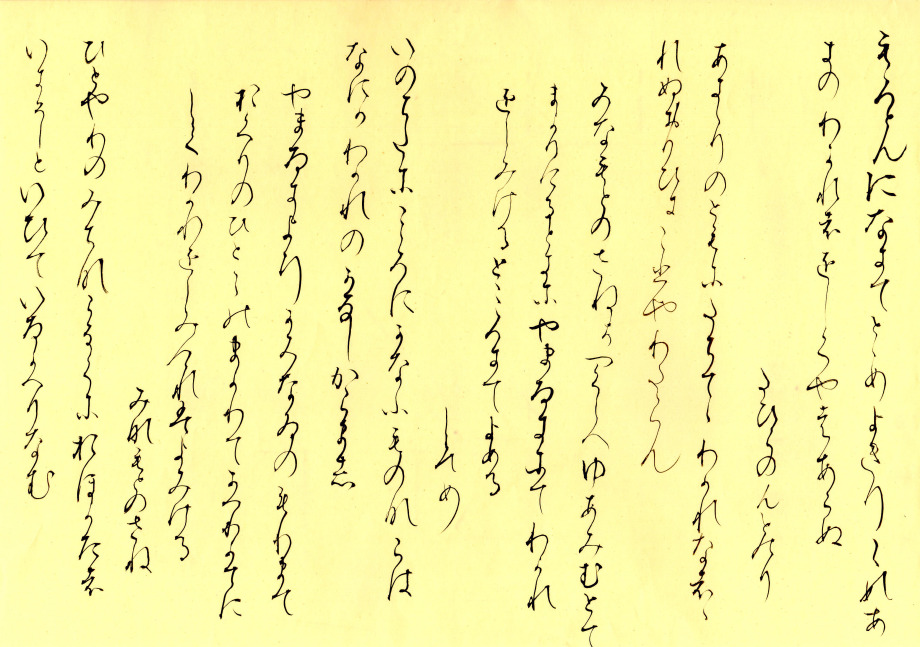 もろともになきてとゝめよきり〳〵すあ
きのわかれはをしくやはあらぬ
たひらのもとのり
あきゝりのともにたちいてゝわかれなはゝ
れぬおもひにこひやわたらん
みなもとのさねかつくしへゆあみむとて
まかりけるときにやまさきにてわかれ
をしみけるところにてよめる
しろめ
いのちたにこゝろにかなふものならは
なにかわかれのかなしからまし
やまさきよりかみなひのもりまて
おくりにひと〳〵まかりてかへりかてに
してわかれをしみけれはよみける
みなもとのさね
ひとやりのみちならなくにおほかたは
いきうしといひていさかへりなむ